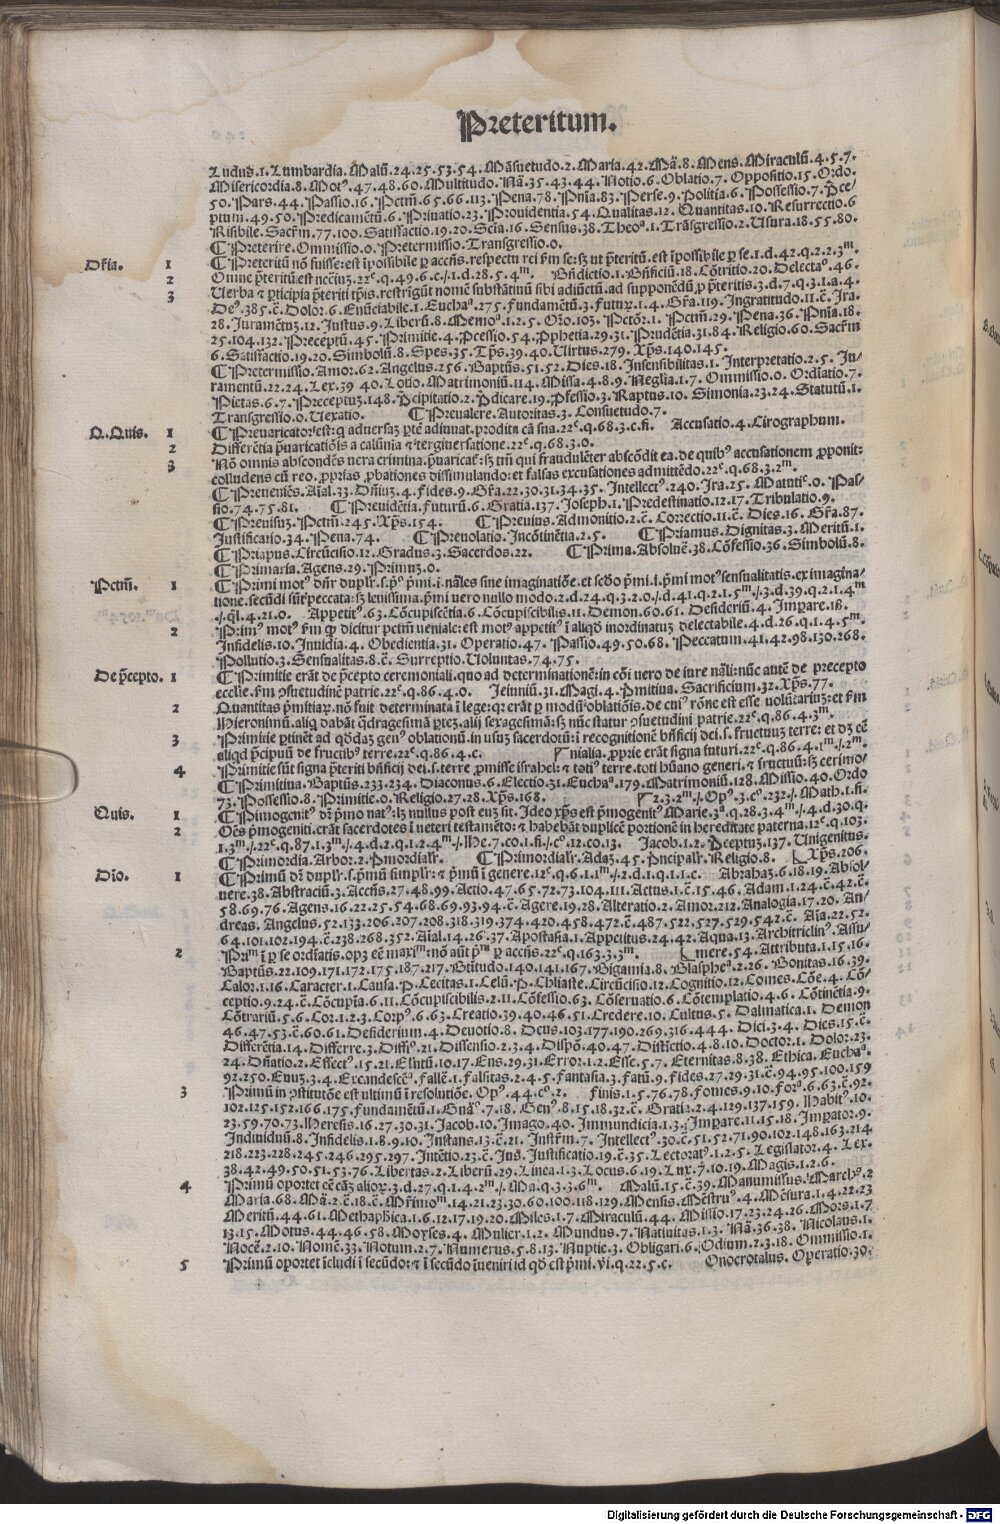 Preteritum.
Ludus.1.Lumbardia. Malū.24.25.53.54. Māsuetudo.2. Maria.42. Mā.8. Mens. Miraculū.4.5.7.
Misericordia.8. Motꝰ.47.48.60. Multitudo. Nā.35.43.44. Notio.6. Oblatio.7. Oppositio.15. Ordo.
50. Pars.44. Passio.16. Pctm̄.65.66.113. Pena.78. Pn̄ia.83. Perse.9. Politia.6. Possessio.7. P̄ce-
ptum.49.50. Predicamētū.6. Priuatio.23. Prouidentia.54. Qualitas.12. Quantitas.10. Resurrectio.6
Risibile. Sacr̄m.77.100. Satisfactio.19.20. Scia.16. Sensus.38. Theoᵃ.1. Trāsgressio.2. Usura.18.55.80.
¶ Preterire. Ommissio.0. Pretermissio. Transgressio.0.
Dr̄ia. 1 ¶ Preteritū nō fuisse: est īpossibile ꝑ accn̄s. respectu rei ẜm se: sꝫ ut p̄teritū. est īpossibile ꝑ se.1.d.42.q.2.2.3ᵐ.
2 Omne p̄teritū est nec̄iuꝫ.22ᵉ.q.49.6.c./.1.d.28.5.4ᵐ. Bn̄dictio.1. Bn̄ficiū.18. Cōtritio.20. Delectaᵒ.46.
3 Uerba ⁊ ꝑticipia p̄teriti tp̄is. restrīgūt nomē substātiuū sibi adiūctū. ad supponēdū ꝓ p̄teritis.3.d.7.q.3.1.a.4.
Deꝰ.385.c̄. Dolor.6. Enūciabile.1. Euchaᵃ.275. Fundamētū.3. Futuꝝ.1.4. Gr̄a.119. Ingratitudo.11.c̄. Ira.
28. Iuramētuꝫ.12. Iustus.9. Liberū.8. Memoᵃ.1.2.5. Or̄o.103. Pctōr.1. Pctm̄.29. Pena.36. Pn̄ia.18.
25.104.132. Preceptū.45. Primitie.4. P̄cessio.54. Ꝓphetia.29.31. Prudētia.31.84. Religio.60. Sacr̄m
6. Satisfactio.19.20. Simbolū.8. Spes.35. Tp̄s.39.40. Uirtus.279. Xp̄s.140.145.
¶ Pretermissio. Amor.62. Angelus.256. Baptūs.51.52. Dies.18. Insensibilitas.1. Interpretatio.2.5. Iu-
ramentū.22.24. Lex.39 40. Lotio. Matrimoniū.114. Missa.4.8.9. Neglīa.1.7. Ommissio.0. Ordīatio.7.
Pietas.6.7. Preceptuꝫ.148. P̄cipitatio.2. P̄dicare.19. Ꝓfessio.3. Raptus.10. Simonia.23.24. Statutū.1.
Transgressio.0. Uexatio. ¶ Preualere. Autoritas.3. Consuetudo.7.
Q. Quis. 1 ¶ Preuaricator est: q̄ aduersaꝫ ꝑtē adiuuat. prodita cā sua.22ᵉ.q.68.3.c.fi. Accusatio.4. Cirographum.
2 Differētia p̄uaricatiōis a calūnia ⁊ tergiuersatione.22ᵉ.q.68.3.0.
3 Nō omnis abscondēs uera crimina. p̄uaricat̄: sꝫ tm̄ qui fraudulēter abscōdit ea. de quibꝰ accusationem ꝓponit:
colludens cū reo. ꝓprias ꝓbationes dissimulando: et falsas excusationes admittēdo.22ᵉ.q.68.3.2ᵐ.
¶ Preueniēs. Aīal.33. Dn̄iuꝫ.4. Fides.9. Gr̄a.22.30.31.34.35. Intellectꝰ.240. Ira.25. Matutiᶜ.0. Pas-
sio.74.75.81. ¶ Preuidētia. Futurū.6. Gratia.137. Joseph.1. Predestinatio.12.17. Tribulatio.9.
¶ Preuisuꝫ. Pctm̄.245. Xp̄s.154. ¶ Preuius. Admonitio.2.c̄. Correctio.11.c̄. Dies.16. Gr̄a.87.
Justificatio.34. Pena.74. ¶ Preuolatio. Incōtinētia.2.5. ¶ Priamus. Dignitas.3. Meritū.1.
¶ Priapus. Circūcisio.12. Gradus.3. Sacerdos.22. ¶ Prima. Absolue̅.38. Cōfessio.36. Simbolū.8.
¶ Primaria. Agens.29. Primuꝫ.0.
Pctm̄. 1 ¶ Primi motꝰ dn̄r duplr̄. s.p̄ᵒ p̄mi.i.nāles sine imaginatiōe. et sc̄do p̄mi.i.p̄mi motꝰ sensualitatis. ex imagīna-
tione. secūdi sūt peccata: sꝫ leuissima. p̄mi uero nullo modo.2.d.24.q.3.2.0./.d.41.q.2.1.5ᵐ./.3.d.39.q.2.1.4ᵐ
./.q̄l.4.21.0. Appetitꝰ.63. Cōcupiscētia.6. Cōcupiscibilis.11. Demon.60.61. Desideriū.4. Impare.18.
2 Primꝰ motꝰ ẜm qꝫ dicitur pctm̄ ueniale: est motꝰ appetitꝰ ī aliqd̄ inordinatuꝫ delectabile.4.d.26.q.1.4.5ᵐ.
Infidelis.10. Inuidia.4. Obedientia.31. Operatio.47. Passio.49.50.68. Peccatum.41.42.98.130.268.
Pollutio.3. Sensualitas.8.c̄. Surreptio. Uoluntas.74.75.
De p̄cepto. 1 ¶ Primitie erāt de p̄cepto ceremoniali. quo ad determinationē: in cōi uero de iure nāli: nūc autē de precepto
ecclie. ẜm ꝯsuetudinē patrie.22ᵉ.q.86.4.0. Ieiuniū.31. Magi.4. P̄mitiua. Sacrificium.32. Xp̄s.77.
2 Quantitas p̄mitiaꝝ. nō fuit determinata ī lege: qꝛ erāt ꝑ modū oblatiōis. de cuiꝰ rōne est esse uolūtariuꝫ: et ẜm
Hieronimū. aliq̄ dabāt q̄dragesimā ptez. alij sexagesimā: sꝫ nūc statur ꝯsuetudini patrie.22ᵉ.q.86.4.3ᵐ.
3 Primitie ꝑtinēt ad qd̄daꝫ genꝰ oblationū. in usuꝫ sacerdotū: ī recognitionē bn̄ficij dei. s. fructuuꝫ terre: et dꝫ cē
aliqd̄ p̄cipuū de fructibꝰ terre.22ᵉ.q.86.4.c. nialia. ꝓprie erāt signa futuri.22ᵉ.q.86.4.1ᵐ./.2ᵐ.
4 Primitie sūt signa p̄teriti bn̄ficij dei. s. terre ꝓmisse israhel: ⁊ totiꝰ terre. toti hūano generi. ⁊ fructuū: sꝫ cerimo-
¶ Primitiua. Baptūs.233.234. Diaconus.6. Electio.31. Euchaᵃ.179. Matrimoniū.128. Missio.40. Ordo
73. Possessio.8. Primitie.0. Religio.27.28. Xp̄s.168. 2.3.2ᵐ./. Opᵒ.3.cᵒ.232./. Math.1.fi.
Quis. 1 ¶ Pimogenitꝰ dr̄ p̄mo natꝰ: lꝫ nullus post euꝫ sit. Ideo xp̄s est p̄mogenitꝰ Marie.3ᵃ.q.28.3.4ᵐ./.4.d.30.q.
2 Oēs p̄mogeniti. erāt sacerdotes ī ueteri testamēto: ⁊ habebāt duplicē portionē in hereditate paterna.12ᵉ.q.103.
1.3ᵐ./.22ᵉ.q.87.1.3ᵐ./.4.d.2.q.1.2.4ᵐ./. He.7.co.1.fi./.cᵒ.12.co.13. Jacob.1.2. P̄ceptuꝫ.137. Unigenitus.
¶ Primordia. Arbor.2. P̄mordialr̄. ¶ Primordialr̄. Adaꝫ.45. P̄ncipalr̄. Religio.8. Xp̄s.206.
Dīo. 1 ¶ Primū dr̄ duplr̄. s. p̄mū simplr̄: ⁊ p̄mū ī genere.12ᵉ.q.6.1.1ᵐ./.2.d.1.q.1.1.c. Abrahaꝫ.6.18.19. Absol-
uere.38. Abstraciū.3. Accn̄s.27.48.99. Actio.47.65.72.73.104.111. Actus.1.c̄.15.46. Adam.1.24.c̄.42.c̄.
58.69.76. Agens.16.22.25.54.68.69.93.94.c̄. Agere.19.28. Alteratio.2. Amor.212. Analogia.17.20. An-
dreas. Angelus.52.133.206.207.208.318.319.374.420.458.472.c̄.487.522.527.529.542.c̄. Aīa.22.52.
64.101.102.194.c̄.238.268.352. Aīal.14.26.37. Apostasia.1. Appetitus.24.42. Aqua.13. Architriclinꝰ. Assu-
2 Priᵐ ī ꝑ se ordiatis. opꝫ eē maxiᵐ: nō aūt p̄ᵐ ꝑ accn̄s.22ᵉ.q.163.3.3ᵐ. mere.54. Attributa.1.15.16.
Baptūs.22.109.171.172.175.187.217. Btitudo.140.141.167. Bigamia.8. Blaspheᵃ.2.26. Bonitas.16.39.
Calor.1.16. Caracter.1. Causa. P. Cecitas.1. Celū. P. Chliaste. Circūcisio.12. Cognitio.12. Comes. Cōe.4. Cō-
ceptio.9.24.c̄. Cōcupīa.6.11. Cōcupiscibilis.2.11. Cōfessio.63. Cōseruatio.6. Cōtemplatio.4.6. Cōtinētia.9.
Cōtrariū.5.6. Cor.1.2.3. Corpꝰ.6.63. Creatio.39.40.46.51. Credere.10. Cultus.5. Dalmatica.1. Demon
46.47.53.c̄.60.61. Desiderium.4. Deuotio.8. Deus.103.177.190.269.316.444. Dici.3.4. Dies.15.c̄.
Differētia.14. Differre.3. Diffiᵒ.21. Dissensio.2.3.4. Dispō.40.47. Distīctio.4.8.10. Doctor.1. Dolor.23.
24. Dn̄atio.2. Effectꝰ.15.21. Eln̄tū.10.17. Ens.29.31. Error.1.2. Esse.5.7. Eternitas.8.38. Ethica. Euchaᵃ.
92.250. Euuꝫ.3.4. Excandescēᵃ. Fallē.1. Falsitas.2.4.5. Fantasia.3. Fatū.9. Fides.27.29.31.c̄.94.95.100.159
3 Primū in ꝯstitutōe est ultimū ī resolutiōe. Opᵒ.44.cᵒ.2. Finis.1.5.76.78. Fomes.9.10. Forᵃ.6.63.c̄.92.
102.125.152.166.175. Fundamētū.1. Gnāᵒ.7.18. Genꝰ.8.15.18.32.c̄. Gratia.2.4.129.137.159. Habitꝰ.10.
23.59.70.73. Heresis.16.27.30.31. Jacob.10. Imago.40. Immundicia.1.3. Impare.11.15.18. Imꝑator.9.
Indiuiduū.8. Infidelis.1.8.9.10. Instans.13.c̄.21. Instr̄m.7. Intellectꝰ.30.c̄.51.52.71.90.102.148.163.214
218.223.228.245.246.295.297. Intētio.23.c̄. Ius. Iustificatio.19.c̄.35. Lectoratꝰ.1.2.5. Legislator.4. Lex.
38.42.49.50.51.53.76. Libertas.2. Liberū.29. Linea.1.3. Locus.6.19. Lux.7.10.19. Magis.1.2.6.
4 Primū oportet eē cāꝫ alioꝝ.3.d.27.q.1.4.2ᵐ./. Ma.q.3.3.6ᵐ. Malū.15.c̄.39. Manumissus. Marchꝰ.2
Maria.68. Mā.2.c̄.18.c̄. Mr̄imoᵐ.14.21.23.30.60.100.118.129. Mensis. Mēstruꝰ.4. Mēsura.1.4.22.23
Meritū.44.61. Methaphica.1.6.12.17.19.20. Miles.1.7. Miraculū.44. Missio.17.23.24.26. Mors.1.7
13.15. Motus.44.46.58. Moyses.4. Mulier.1.2. Mundus.7. Natiuitas.1.3. Nā.36.38. Nicolaus.1.
Nocē.2.10. Nomē.33. Notum.2.7. Numerus.5.8.13. Nuptie.3. Obligari.6. Odium.2.3.18. Ommissio.1.
5 Primū oportet īcludi ī secūdo: ⁊ ī secūdo īueniri id qd̄ est p̄mi.vi.q.22.5.c. Onocrotalus. Operatio.30.
Digitalisierung gefördert durch die Deutsche Forschungsgemeinschaft - DFG